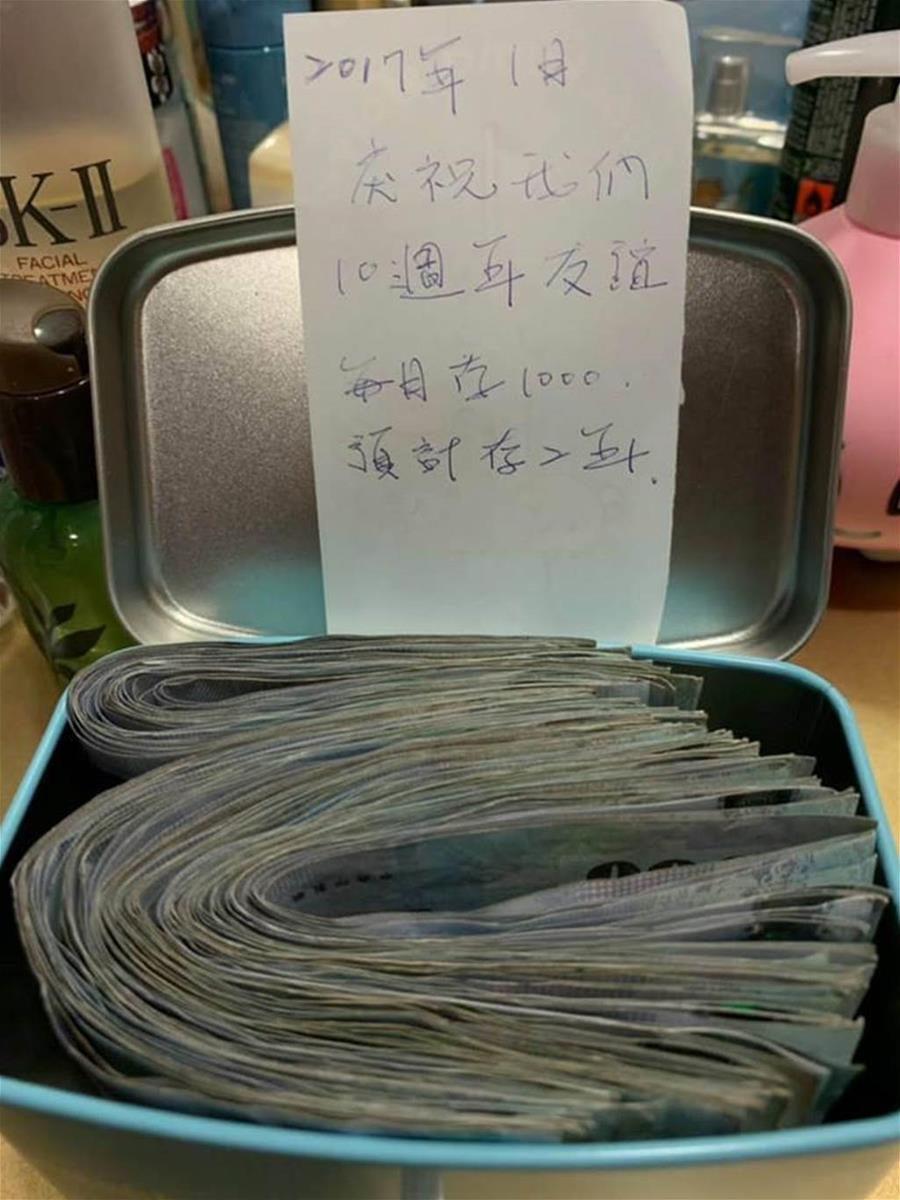 2017年 1月
庆祝我們
10週年友誼
每月存1000.
預計存2年.
SK-II
FACIAL
TREATMENT